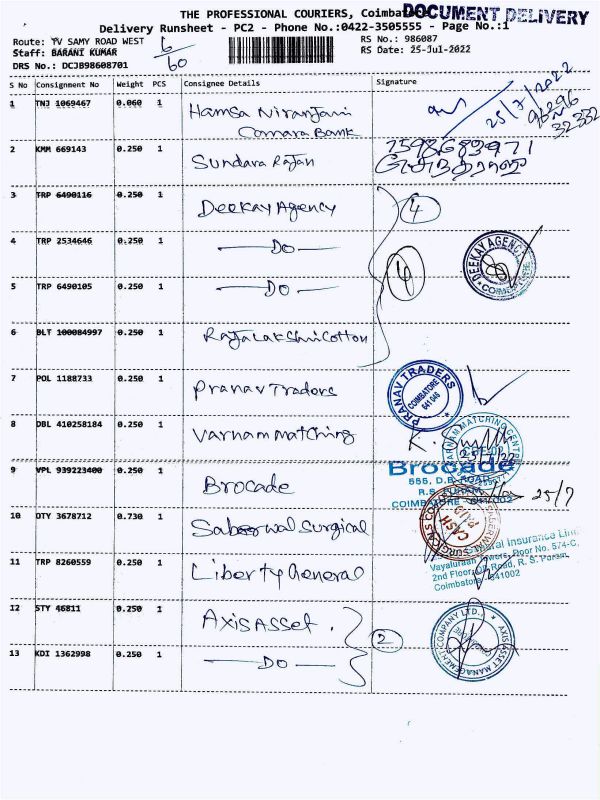 THE PROFESSIONAL COURIERS, Coimbat
DOCUMENT DELIVERY
Delivery Runsheet - PC2 - Phone No.:0422-3505555 - Page No.:1
Route: TV SAMY ROAD WEST
6/60
RS No.: 986087
Staff: BARANI KUMAR
RS Date: 25-Jul-2022
DRS No.: DCJB98608701
S No Consignment No Weight PCS Consignee Details Signature
1 TNJ 1069467 0.060 1 Hamsa Niranjani
Canara Bank
25/7/2022
96296
32332
2 KMM 669143 0.250 1 Sundara Rajan
7598689971
3 TRP 6490116 0.250 1 Deekay Agency
4
4 TRP 2534646 0.250 1 — Do —
DEEKAY AGENCY
COIMBATORE
5 TRP 6490105 0.250 1 — Do —
6 BLT 100084997 0.250 1 Rajalakshmi Cotton
7 POL 1188733 0.250 1 Pranav Traders
PRANAV TRADERS
COIMBATORE
641 046
8 DBL 410258184 0.250 1 Varnam Matching
VARNAM MATCHING CENTRE
25/7/22
9 VPL 939223400 0.250 1 Brocade
Brocade
555, D.B. ROAD,
R.S. PURAM,
COIMBATORE - 641 002
25/7
10 DTY 3678712 0.730 1 Saberwal Surgical
CASH
PAID
11 TRP 8260559 0.250 1 Liberty General
General Insurance Lim
Vayaluraan Towers, Door No. 574-C,
2nd Floor, DB Road, R. S. Puram
Coimbatore - 641002
12 STY 46811 0.250 1 Axis Asset.
2
AXIS ASSET MANAGEMENT COMPANY LTD.,
13 KDI 1362998 0.250 1 — Do —